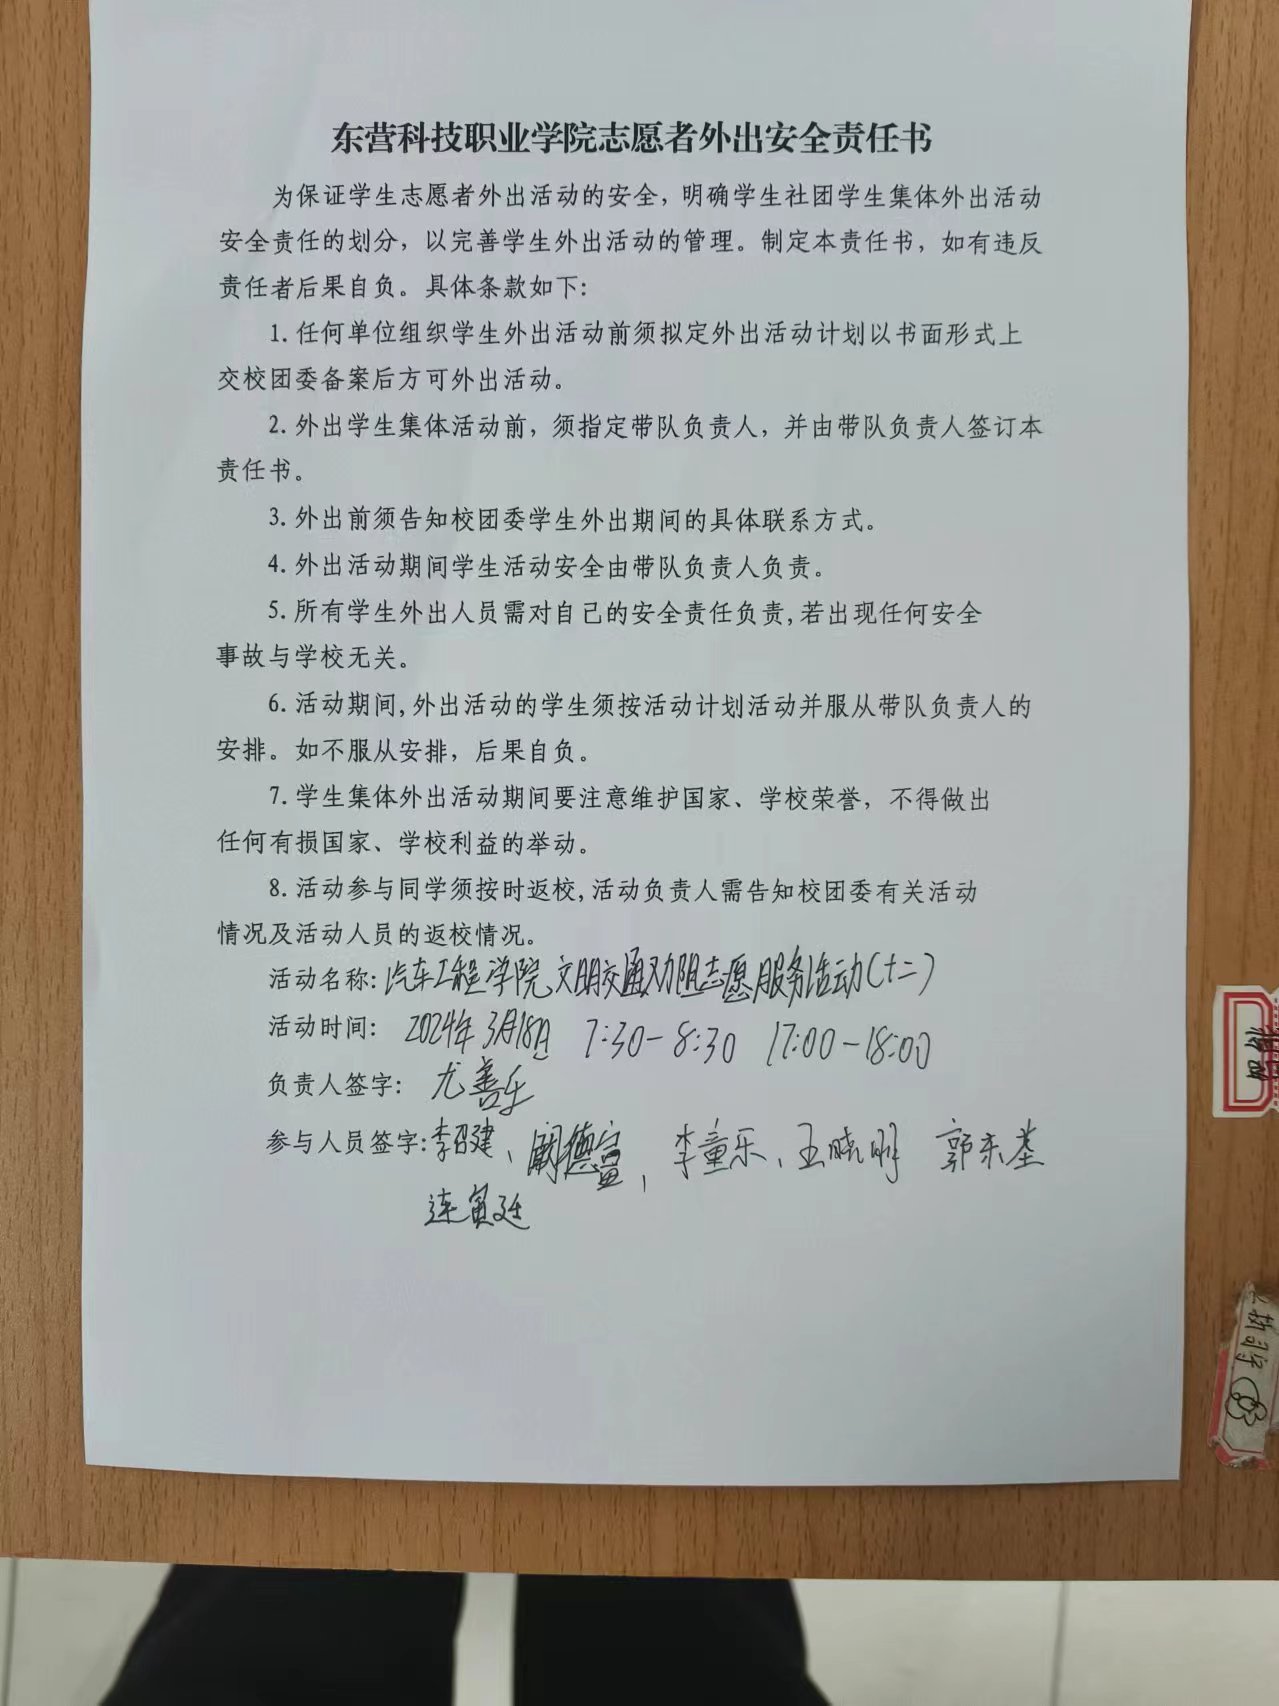 东营科技职业学院志愿者外出安全责任书
为保证学生志愿者外出活动的安全，明确学生社团学生集体外出活动
安全责任的划分，以完善学生外出活动的管理。制定本责任书，如有违反
责任者后果自负。具体条款如下：
1. 任何单位组织学生外出活动前须拟定外出活动计划以书面形式上
交校团委备案后方可外出活动。
2. 外出学生集体活动前，须指定带队负责人，并由带队负责人签订本
责任书。
3. 外出前须告知校团委学生外出期间的具体联系方式。
4. 外出活动期间学生活动安全由带队负责人负责。
5. 所有学生外出人员需对自己的安全责任负责,若出现任何安全
事故与学校无关。
6. 活动期间,外出活动的学生须按活动计划活动并服从带队负责人的
安排。如不服从安排，后果自负。
7. 学生集体外出活动期间要注意维护国家、学校荣誉，不得做出
任何有损国家、学校利益的举动。
8. 活动参与同学须按时返校,活动负责人需告知校团委有关活动
情况及活动人员的返校情况。
活动名称: 汽车工程学院文明交通劝阻志愿服务活动(十二)
活动时间: 2024年3月18日 7:30-8:30 17:00-18:00
负责人签字: 尤善乐
参与人员签字: 李召建、德宣, 李童乐、王晓明 郭东基
连寅廷